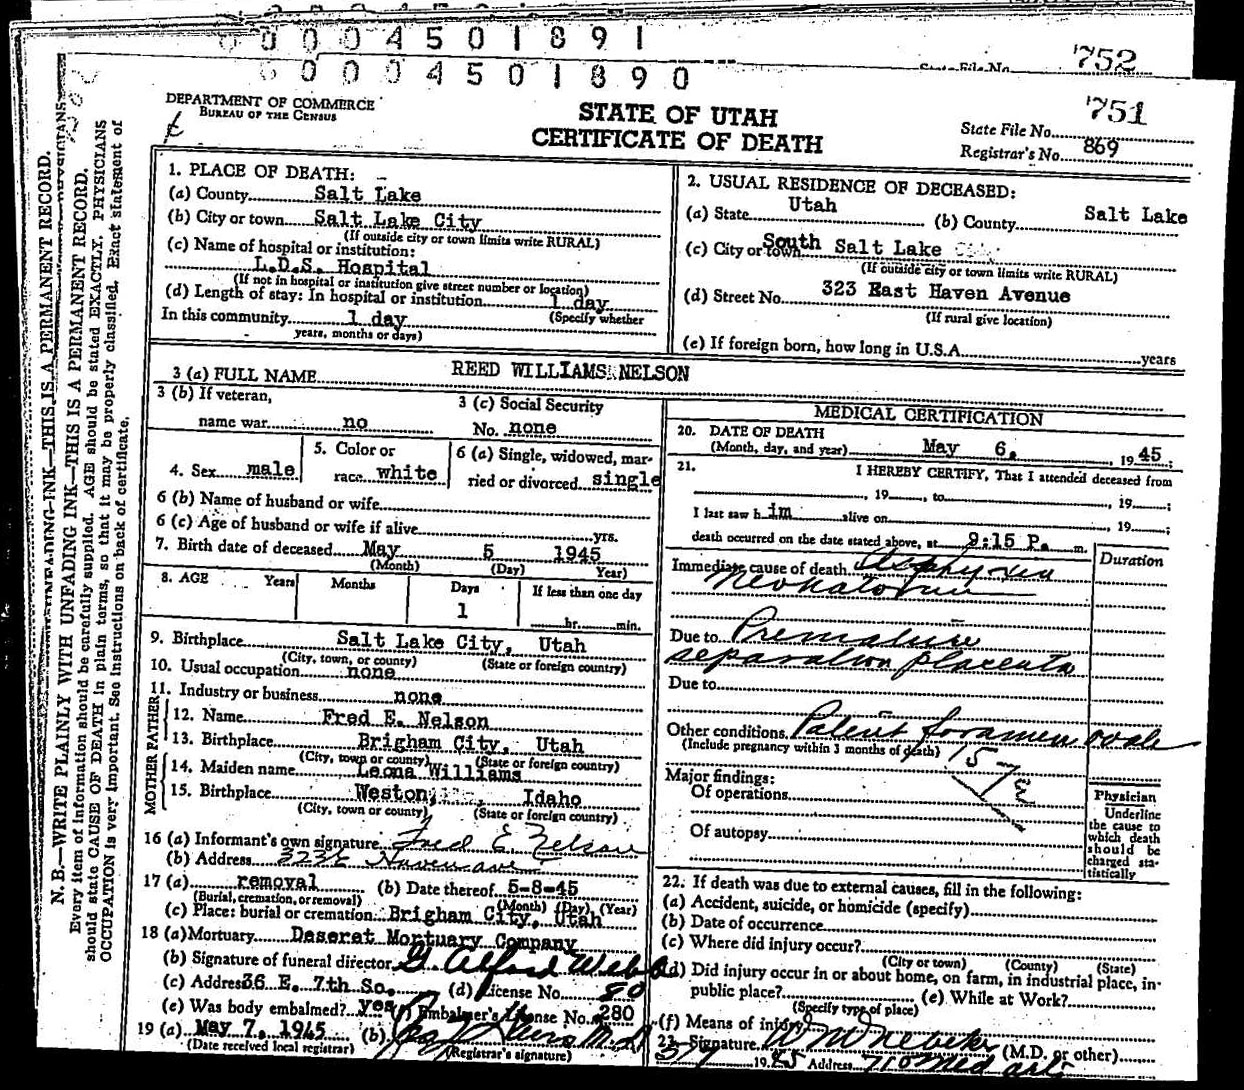 0 0 0 4 5 0 1 8 9 1
752
0 0 0 4 5 0 1 8 9 0
State File No.
DEPARTMENT OF COMMERCE
BUREAU OF THE CENSUS
STATE OF UTAH
CERTIFICATE OF DEATH
751
State File No.
Registrar's No. 869
N. B.—WRITE PLAINLY WITH UNFADING INK—THIS IS A PERMANENT RECORD.
Every item of information should be carefully supplied. AGE should be stated EXACTLY. PHYSICIANS
should state CAUSE OF DEATH in plain terms, so that it may be properly classified. Exact statement of
OCCUPATION is very important. See instructions on back of certificate.
1. PLACE OF DEATH:
(a) County Salt Lake
(b) City or town Salt Lake City
(If outside city or town limits write RURAL)
(c) Name of hospital or institution:
L.D.S. Hospital
(If not in hospital or institution give street number or location)
(d) Length of stay: In hospital or institution 1 day
In this community 1 day (Specify whether
years, months or days)
2. USUAL RESIDENCE OF DECEASED:
(a) State Utah (b) County Salt Lake
(c) City or town South Salt Lake
(If outside city or town limits write RURAL)
(d) Street No. 323 East Haven Avenue
(If rural give location)
(e) If foreign born, how long in U.S.A. years
3 (a) FULL NAME REED WILLIAMS NELSON
3 (b) If veteran,
name war no
3 (c) Social Security
No. none
4. Sex male
5. Color or
race white
6 (a) Single, widowed, mar-
ried or divorced single
6 (b) Name of husband or wife
6 (c) Age of husband or wife if alive yrs.
7. Birth date of deceased May 5 1945
(Month) (Day) Year)
8. AGE Years Months Days If less than one day
1 hr. min.
9. Birthplace Salt Lake City, Utah
(City, town, or county) (State or foreign country)
10. Usual occupation none
11. Industry or business none
FATHER
12. Name Fred E. Nelson
13. Birthplace Brigham City, Utah
(City, town or county) (State or foreign country)
MOTHER
14. Maiden name Leona Williams
15. Birthplace Weston, Idaho
(City, town or county) (State or foreign country)
16 (a) Informant's own signature Fred E. Nelson
(b) Address 323 E Haven ave
17 (a) removal (b) Date thereof 5-8-45
(Burial, cremation, or removal) (Month) (Day) (Year)
(c) Place: burial or cremation Brigham City, Utah
18 (a) Mortuary Deseret Mortuary Company
(b) Signature of funeral director G. Alford Webb
(c) Address 36 E. 7th So. (d) License No. 80
(e) Was body embalmed? yes (f) Embalmer's License No. 280
19 (a) May 7, 1945 (b) M.D.
(Date received local registrar) (Registrar's signature)
MEDICAL CERTIFICATION
20. DATE OF DEATH
(Month, day, and year) May 6, 1945;
21. I HEREBY CERTIFY, That I attended deceased from
, 19 , to , 19 ;
I last saw h im alive on , 19 ;
death occurred on the date stated above, at 9:15 P. m.
Duration
Immediate cause of death Asphyxia
Neonatorum
Due to Premature
separation placenta
Due to
Other conditions Patent foramen ovale
(Include pregnancy within 3 months of death)
Major findings:
Of operations
Of autopsy
Physician
Underline
the cause to
which death
should be
charged sta-
tistically
22. If death was due to external causes, fill in the following:
(a) Accident, suicide, or homicide (specify)
(b) Date of occurrence
(c) Where did injury occur?
(City or town) (County) (State)
(d) Did injury occur in or about home, on farm, in industrial place, in-
public place? (e) While at Work?
(Specify type of place)
(f) Means of injury
23. Signature W M Nebeker (M.D. or other)
5/7 1945 Address 710 Med arts